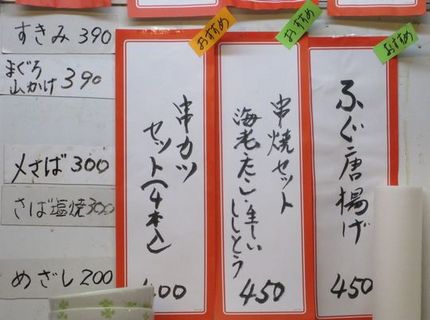 すきみ 390
まぐろ
山かけ 390
〆さば 300
さば塩焼 300
めざし 200
おすすめ
串カツ
セット(4本入)
400
おすすめ
串焼セット
海老・たこ・生しい
ししとう
450
おすすめ
ふぐ唐揚げ
450